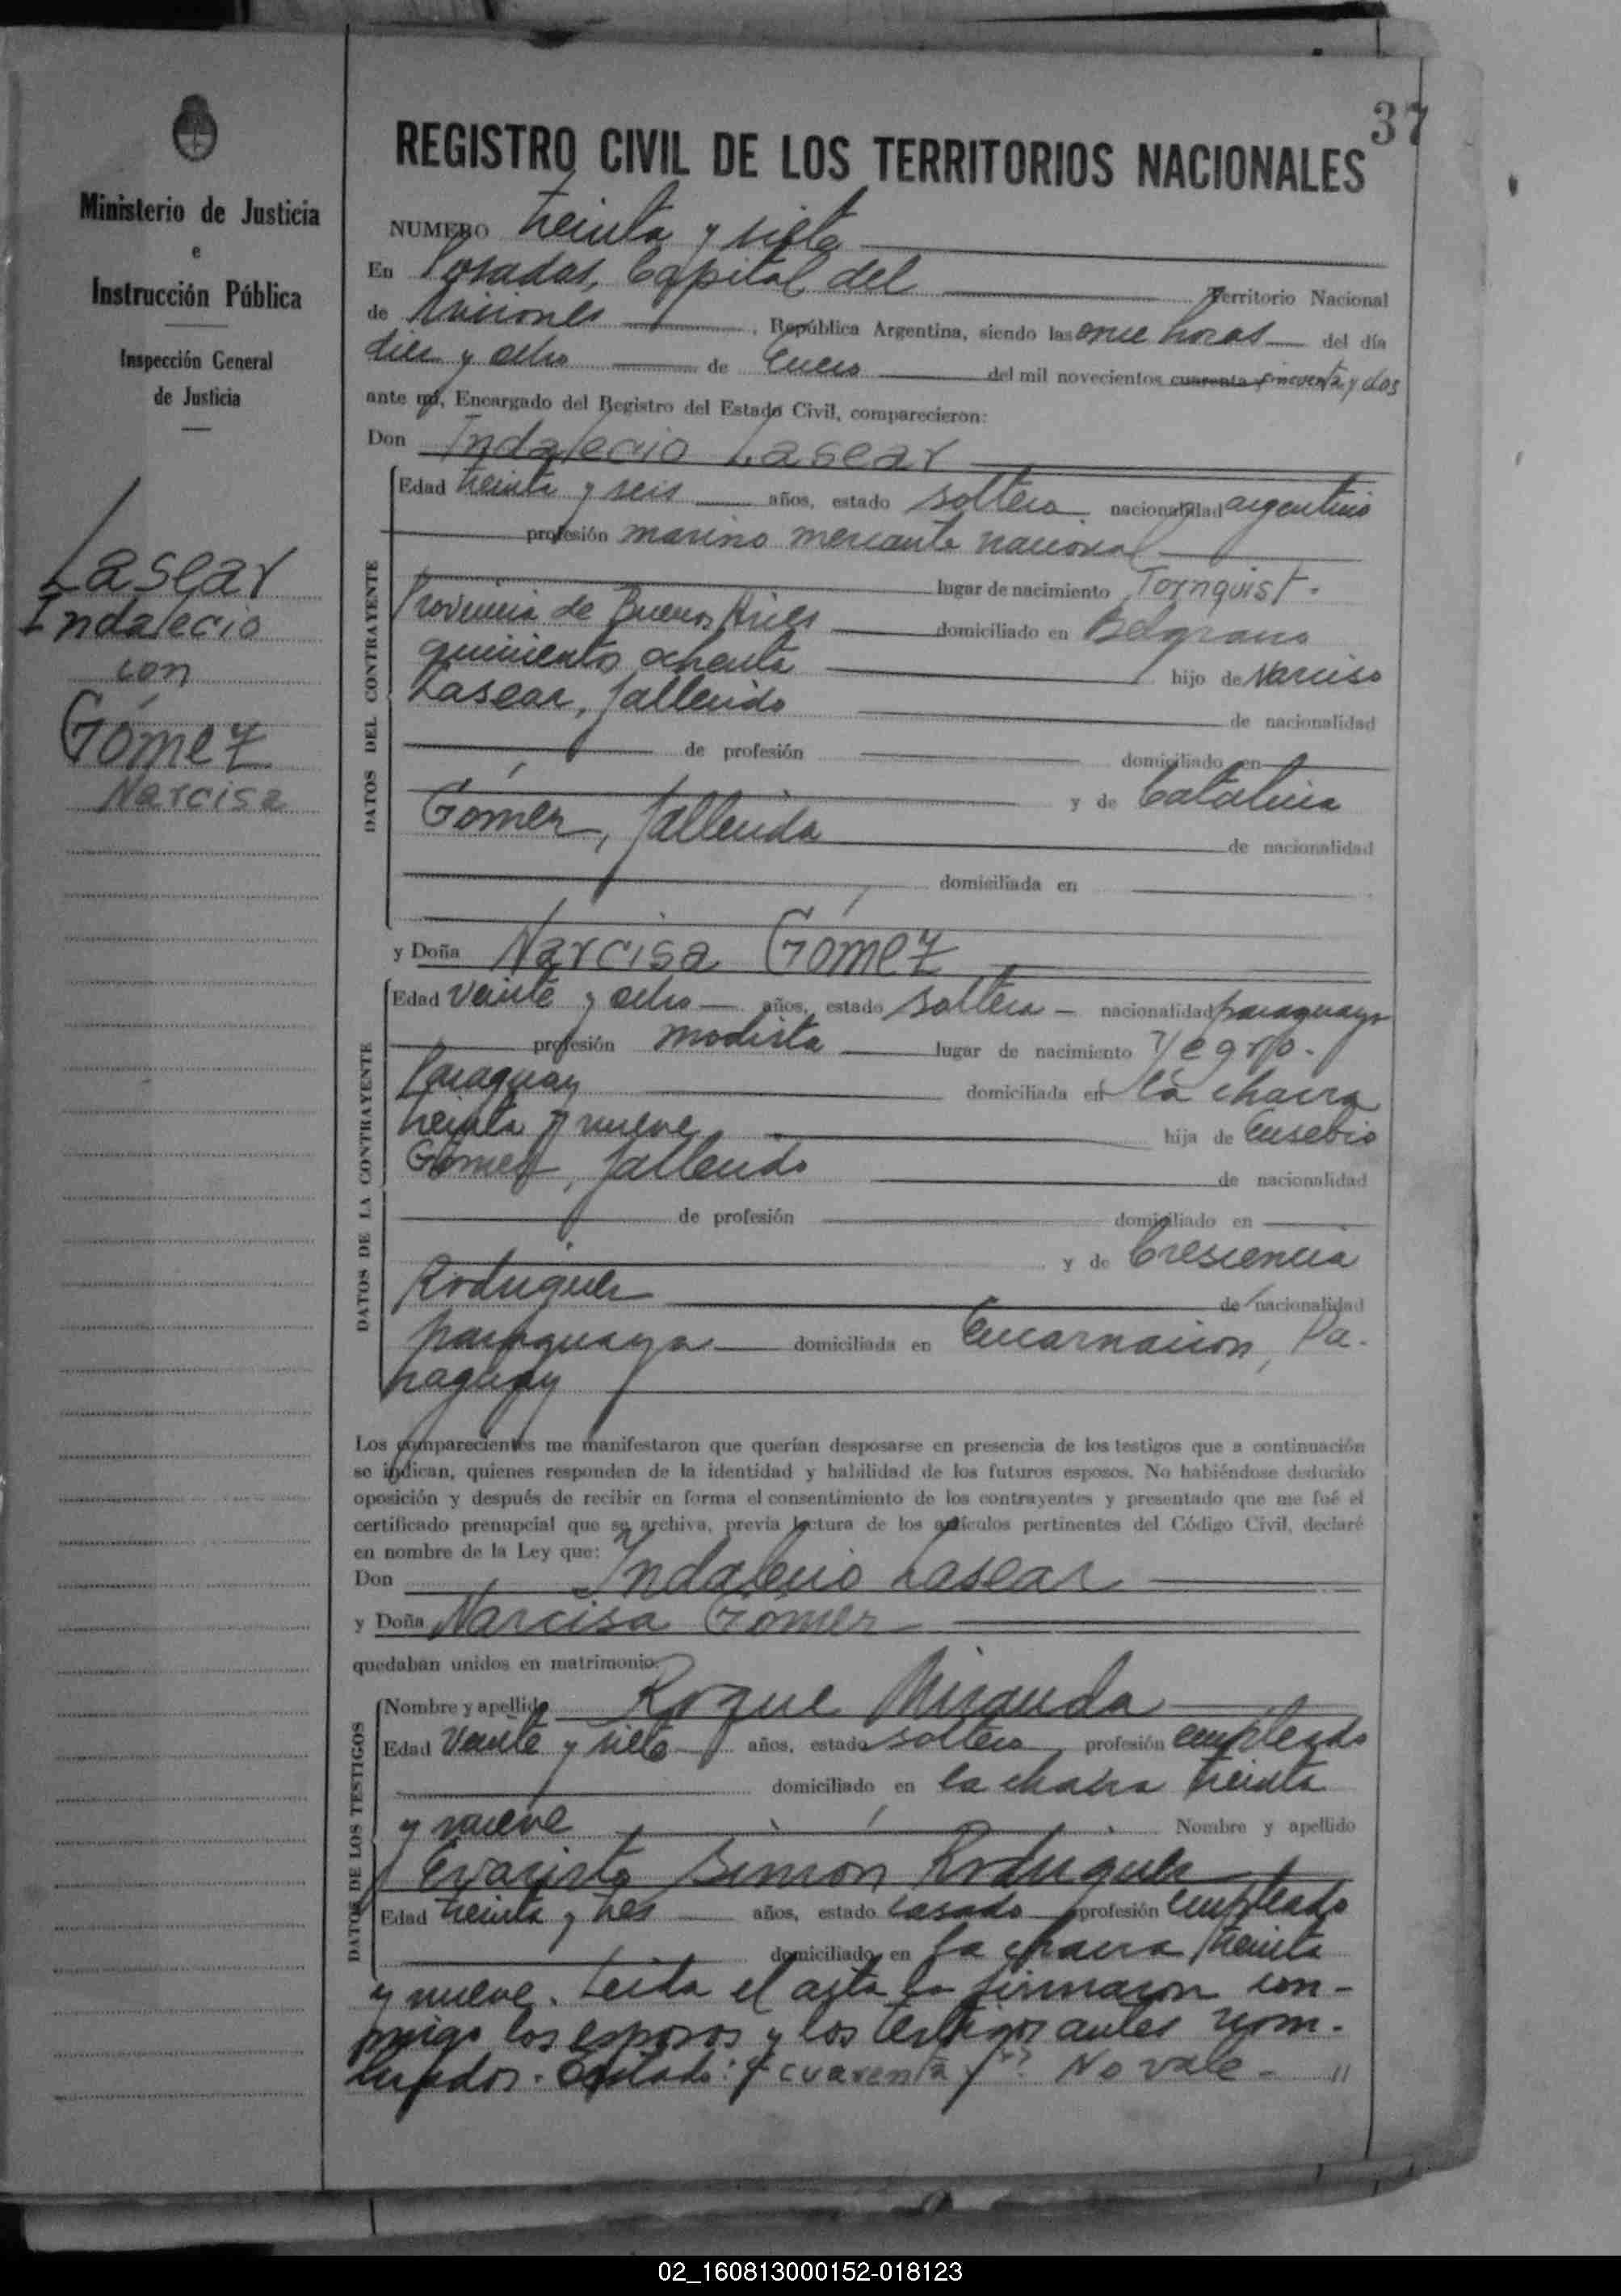 37
Ministerio de Justicia
e
Instrucción Pública
Inspección General
de Justicia
Lasear
Indalecio
con
Gómez
Narcisa
REGISTRO CIVIL DE LOS TERRITORIOS NACIONALES
NUMERO treinta y siete
En Posadas, Capital del Territorio Nacional
de Misiones, República Argentina, siendo las once horas del día
diez y ocho de Enero del mil novecientos cuarenta y cincuenta y dos
ante mí, Encargado del Registro del Estado Civil, comparecieron:
Don Indalecio Lasear
DATOS DEL CONTRAYENTE
Edad treinta y seis años, estado soltero nacionalidad argentino
profesión marino mercante nacional
lugar de nacimiento Tornquist.
Provincia de Buenos Aires domiciliado en Belgrano
quinientos ochenta hijo de Narciso
Lasear, fallecido de nacionalidad
de profesión domiciliado en
y de Catalina
Gómez, fallecida de nacionalidad
domiciliada en
y Doña Narcisa Gómez
DATOS DE LA CONTRAYENTE
Edad veinte y ocho años, estado soltera nacionalidad paraguaya
profesión modista lugar de nacimiento Yegro.
Paraguay domiciliada en la chacra
treinta y nueve hija de Eusebio
Gómez, fallecido de nacionalidad
de profesión domiciliado en
y de Crescencia
Rodriguez de nacionalidad
paraguaya domiciliada en Encarnacion, Pa-
raguay
Los comparecientes me manifestaron que querían desposarse en presencia de los testigos que a continuación
se indican, quienes responden de la identidad y habilidad de los futuros esposos. No habiéndose deducido
oposición y después de recibir en forma el consentimiento de los contrayentes y presentado que me fué el
certificado prenupcial que se archiva, previa lectura de los artículos pertinentes del Código Civil, declaré
en nombre de la Ley que:
Don Indalecio Lasear
y Doña Narcisa Gómez
quedaban unidos en matrimonio.
DATOS DE LOS TESTIGOS
Nombre y apellido Roque Miranda
Edad veinte y siete años, estado soltero profesión empleado
domiciliado en la chacra treinta
y nueve Nombre y apellido
Evaristo Simón Rodriguez
Edad treinta y tres años, estado casado profesión empleado
domiciliado en la chacra treinta
y nueve. Leída el acta la firmaron con-
migo los esposos y los testigos antes nom-
brados. Testado: "cuarenta y" No vale. "
02_160813000152-018123